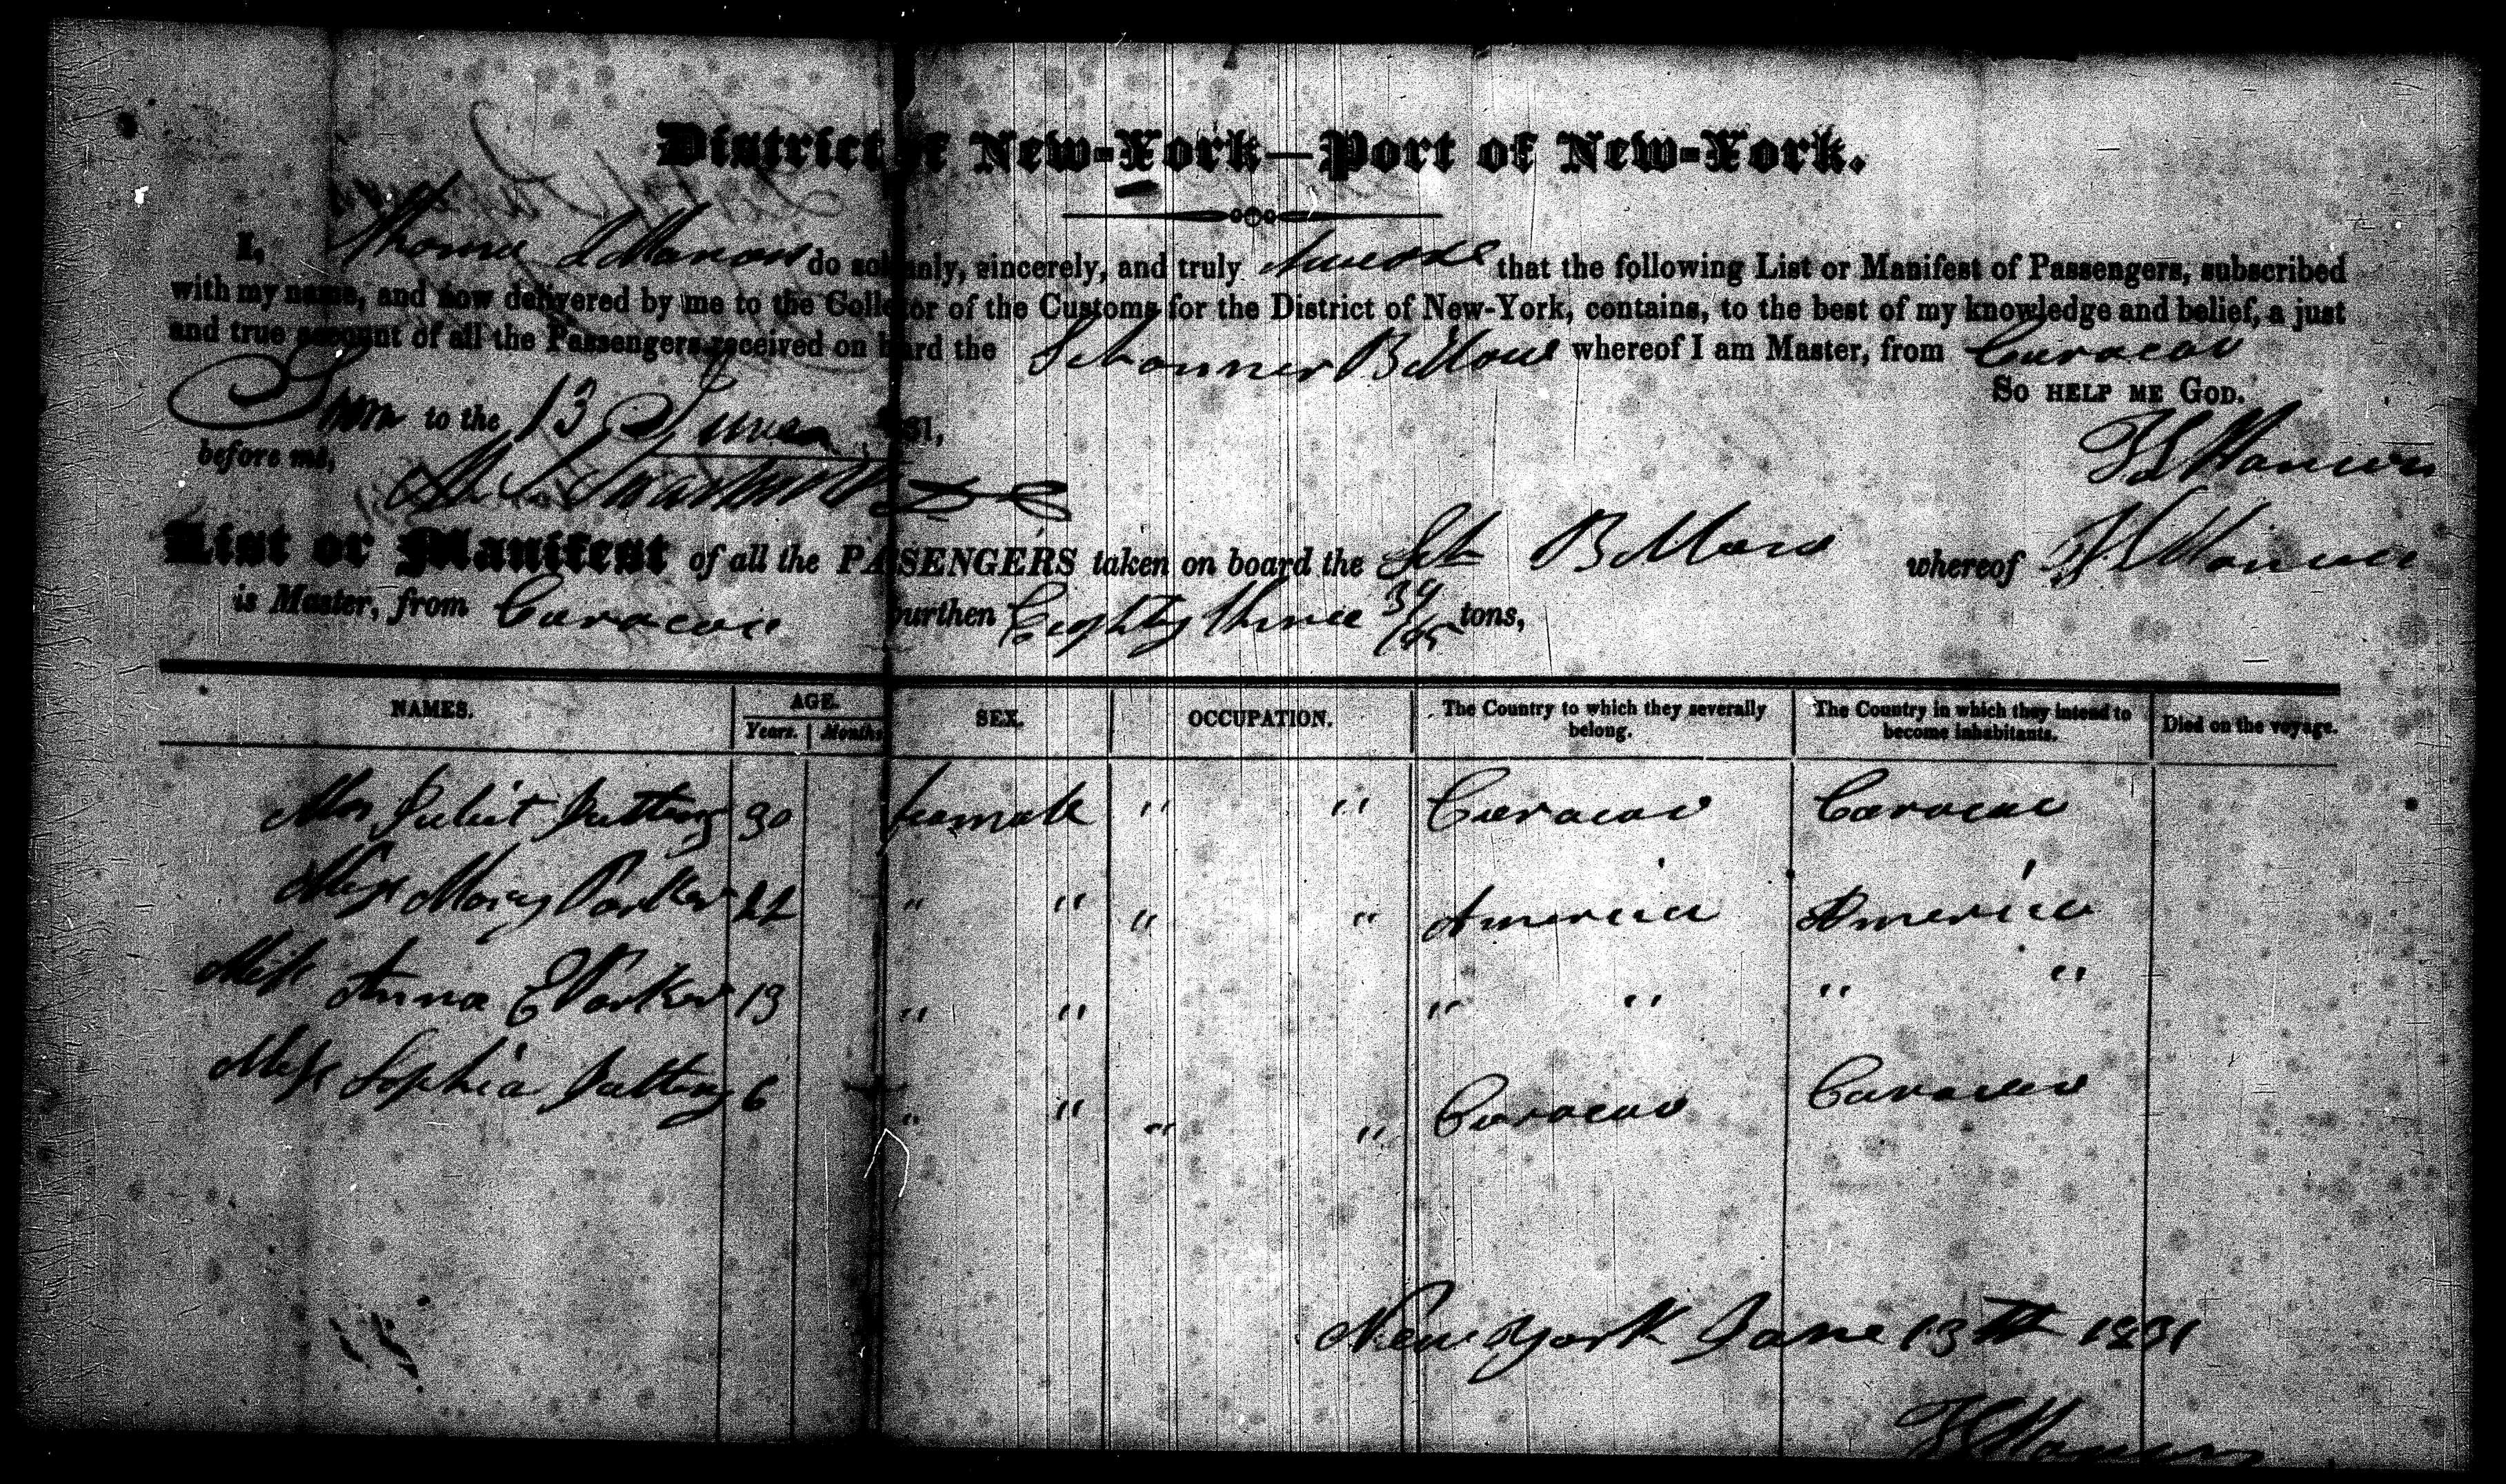 District of New-York—Port of New-York.
I, Thomas do solemnly, sincerely, and truly that the following List or Manifest of Passengers, subscribed
with my name, and now delivered by me to the Collector of the Customs for the District of New-York, contains, to the best of my knowledge and belief, a just
and true account of all the Passengers received on board the Schooner whereof I am Master, from Curacao
So help me God.
to the 13 June 1831,
before me,
List or Manifest of all the PASSENGERS taken on board the Sch whereof
is Master, from Curacao burthen Eighty three tons,
NAMES. AGE. Years. Months. SEX. OCCUPATION. The Country to which they severally belong. The Country in which they intend to become inhabitants. Died on the voyage.
Mrs Juliet 30 female " " Curacao Curacao
Miss Mary Parker 22 " " " " America America
Miss Anna E Parker 13 " " " " " "
Miss Sophia 6 " " " " Curacao Curacao
New York June 13th 1831